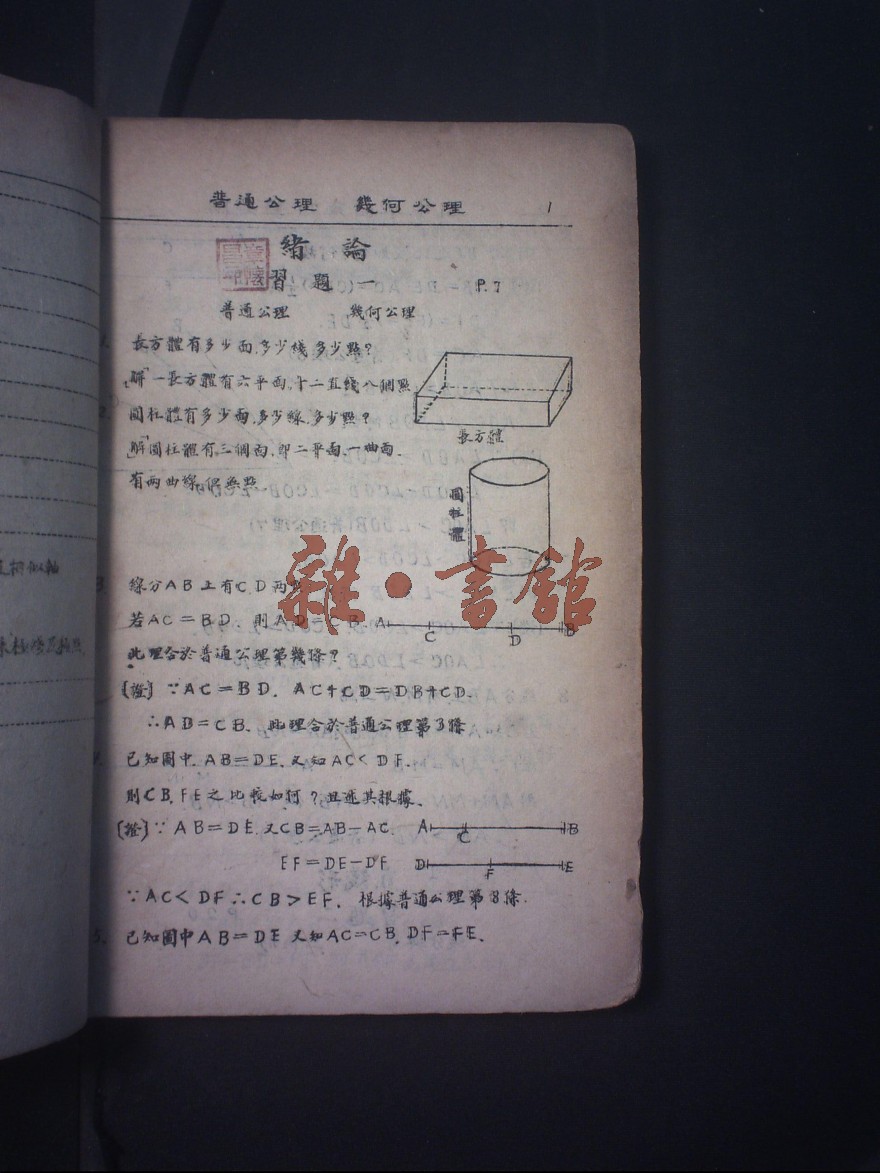 普通公理 幾何公理 1
緒論
習題一 P.7
普通公理 幾何公理
長方體有多少面,多少綫,多少點?
「解」一長方體有六平面,十二直綫八個點
長方體
圓柱體有多少面,多少線,多少點?
「解」圓柱體有三個面,即二平面,一曲面.
有兩曲線,但無點
圓柱體
雜·書館
3. 線分AB上有C.D两點
若AC=BD.則AD=CB. A C D B
此理合於普通公理第幾條?
〔證〕∵AC=BD. AC+CD=DB+CD.
∴AD=CB. 此理合於普通公理第3條
已知圖中.AB=DE.又知AC<DF.
則CB.FE之比較如何?且述其根據.
〔證〕∵AB=DE.又CB=AB-AC. A C B
EF=DE-DF D F E
∵AC<DF∴CB>EF. 根據普通公理第8條.
5. 已知圖中AB=DE又知AC=CB.DF=FE.